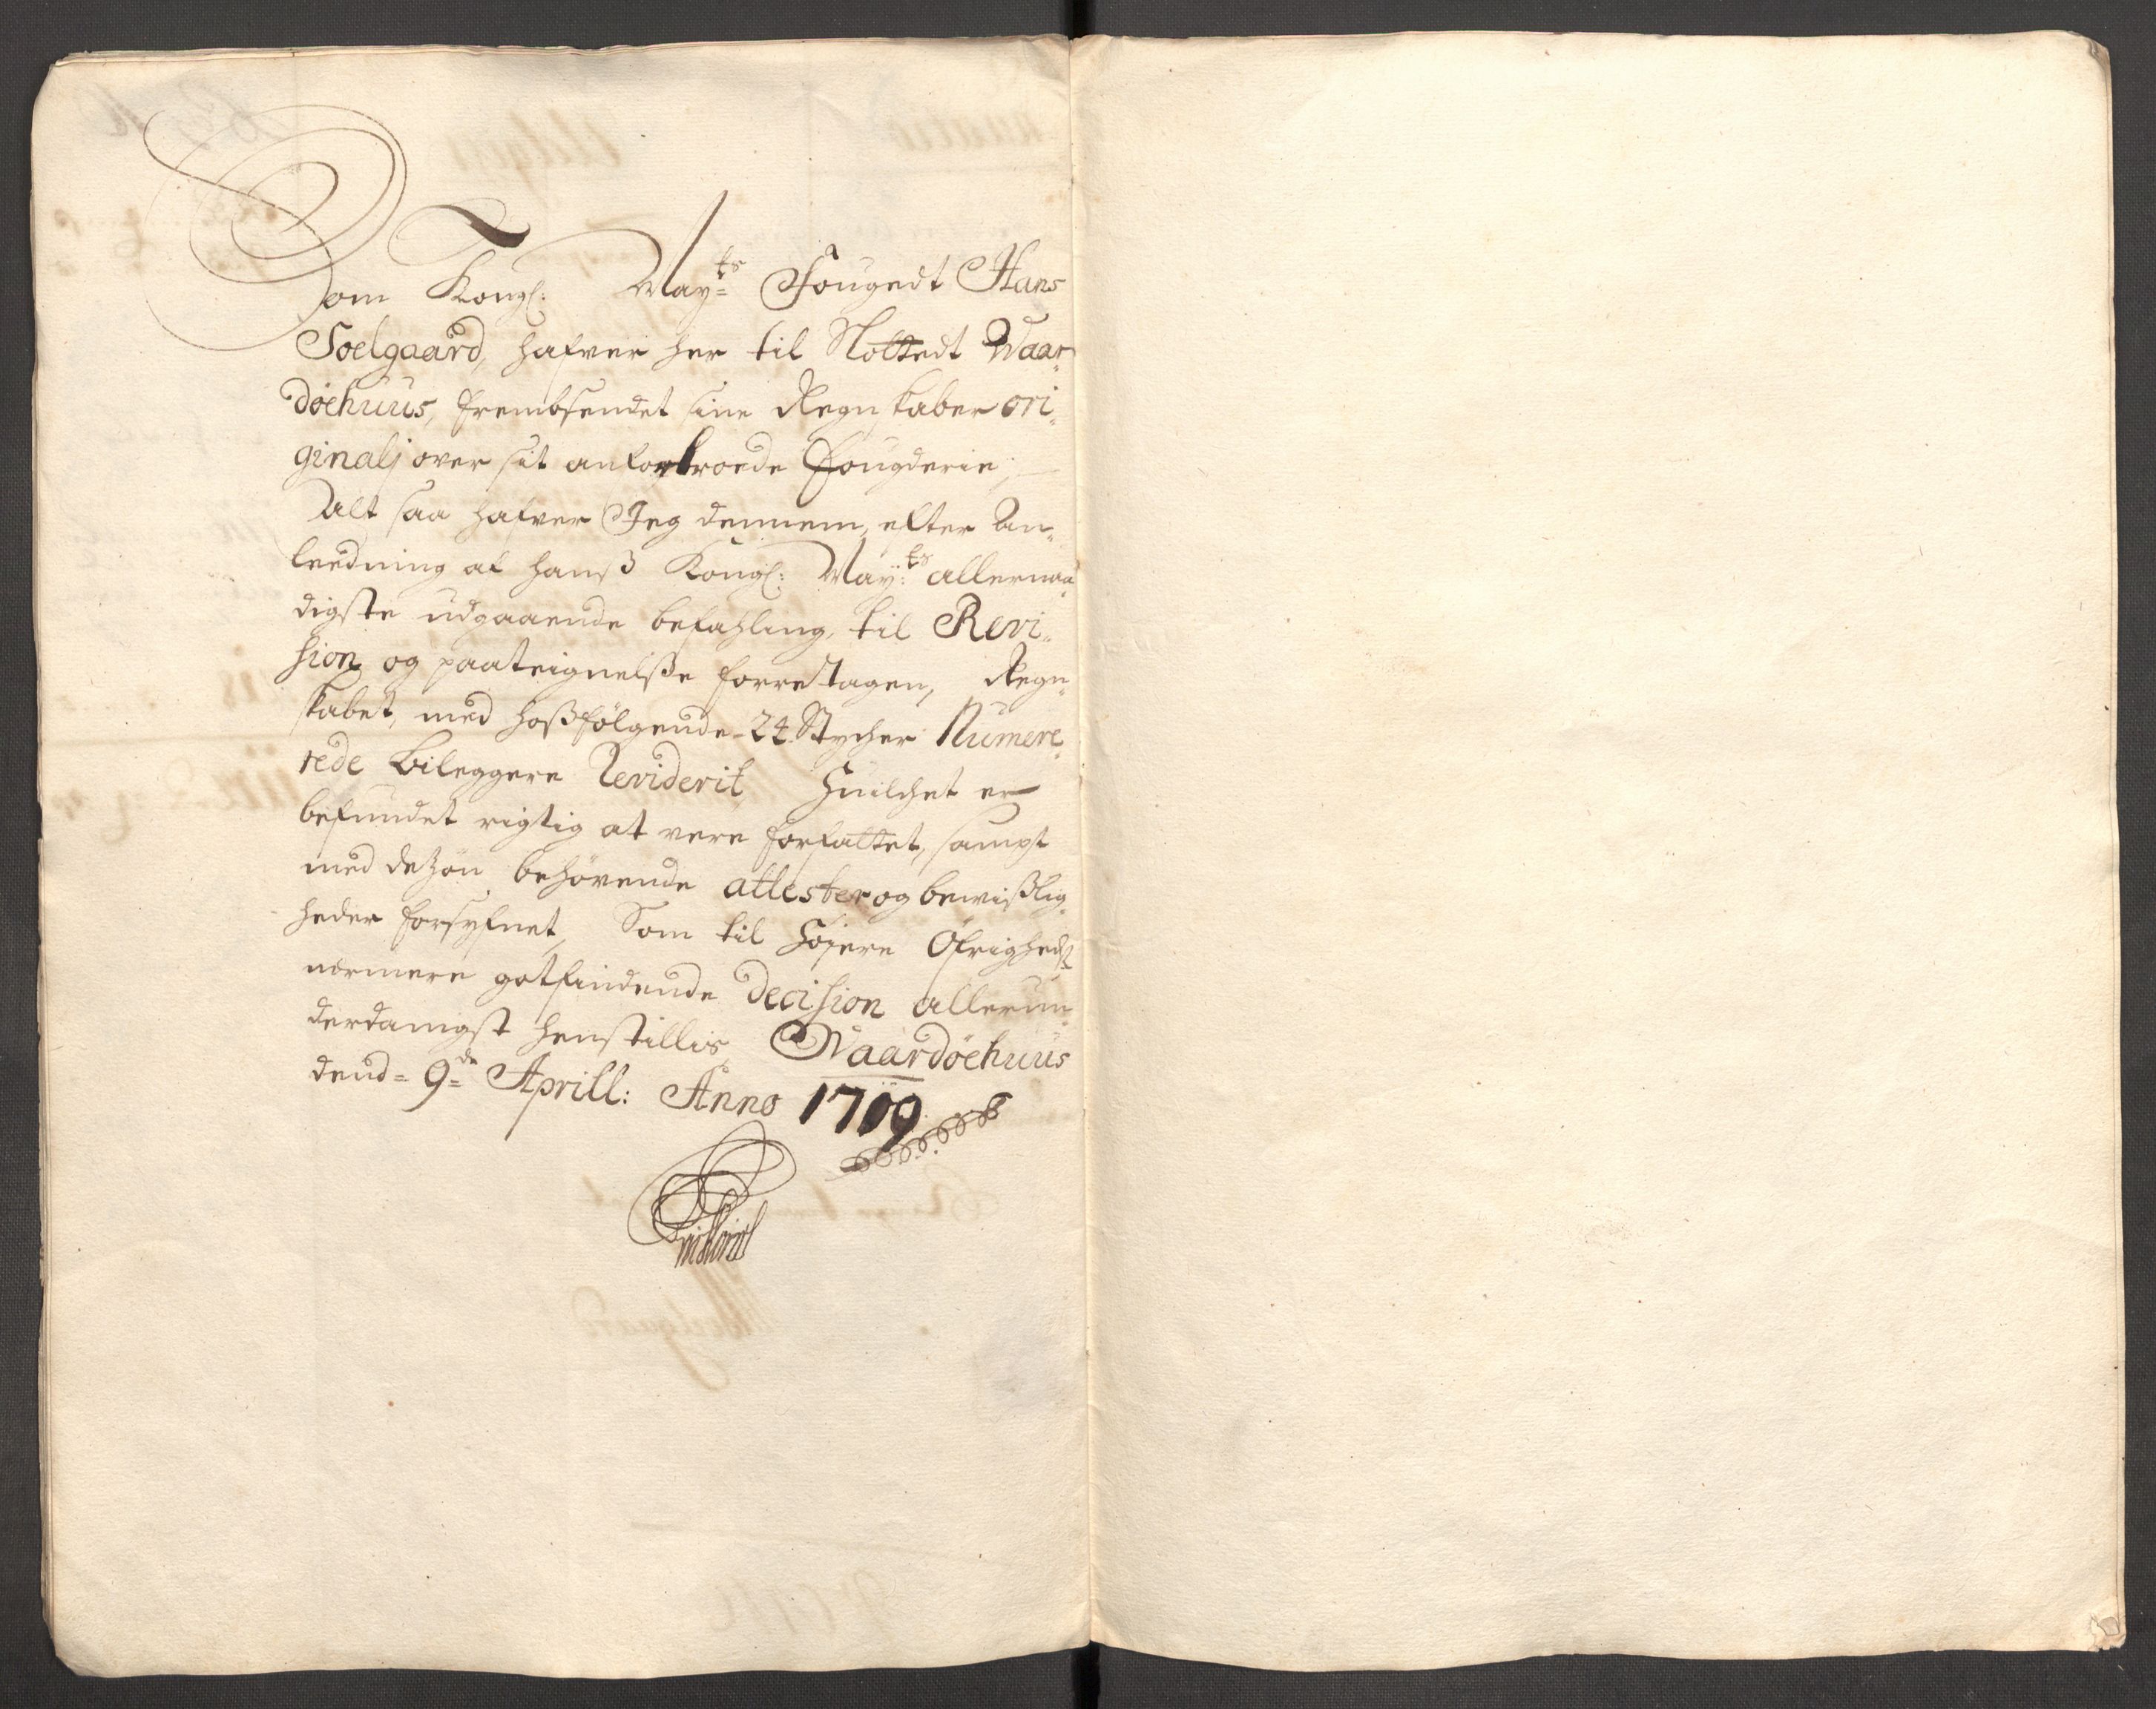 Som Kongl: May:ts Fougedt Hans
Soelgaard, hafver her til Slottedt Waar„
döehuus, frembsendet sine Regnskaber ori„
ginalj over sit anfortroede Fougderie;
Alt saa hafver Jeg dennem, efter An„
leedning af hanß Kongl: May:ts allernaa„
digste udgaaende befahling, til Revi„
sion og paateignelße forretagen, Regn„
skabet, med hoßfölgende 24 Stycher Numere„
rede bileggere Reviderit, Huilchet er
befundet rigtig at vere forfattet, sampt
med dehön behövende attester og bewißlig„
heder forsyfnet, Som til Höjere Öfrigheds
nærmere gotfindende Decision allerun„
derdanigst henstilles, Waardöehuus
dend= 9=de Aprill: Anno 1709